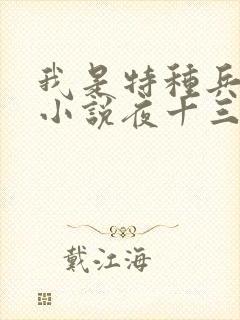 我是特種兵
小說夜十三
戴江海